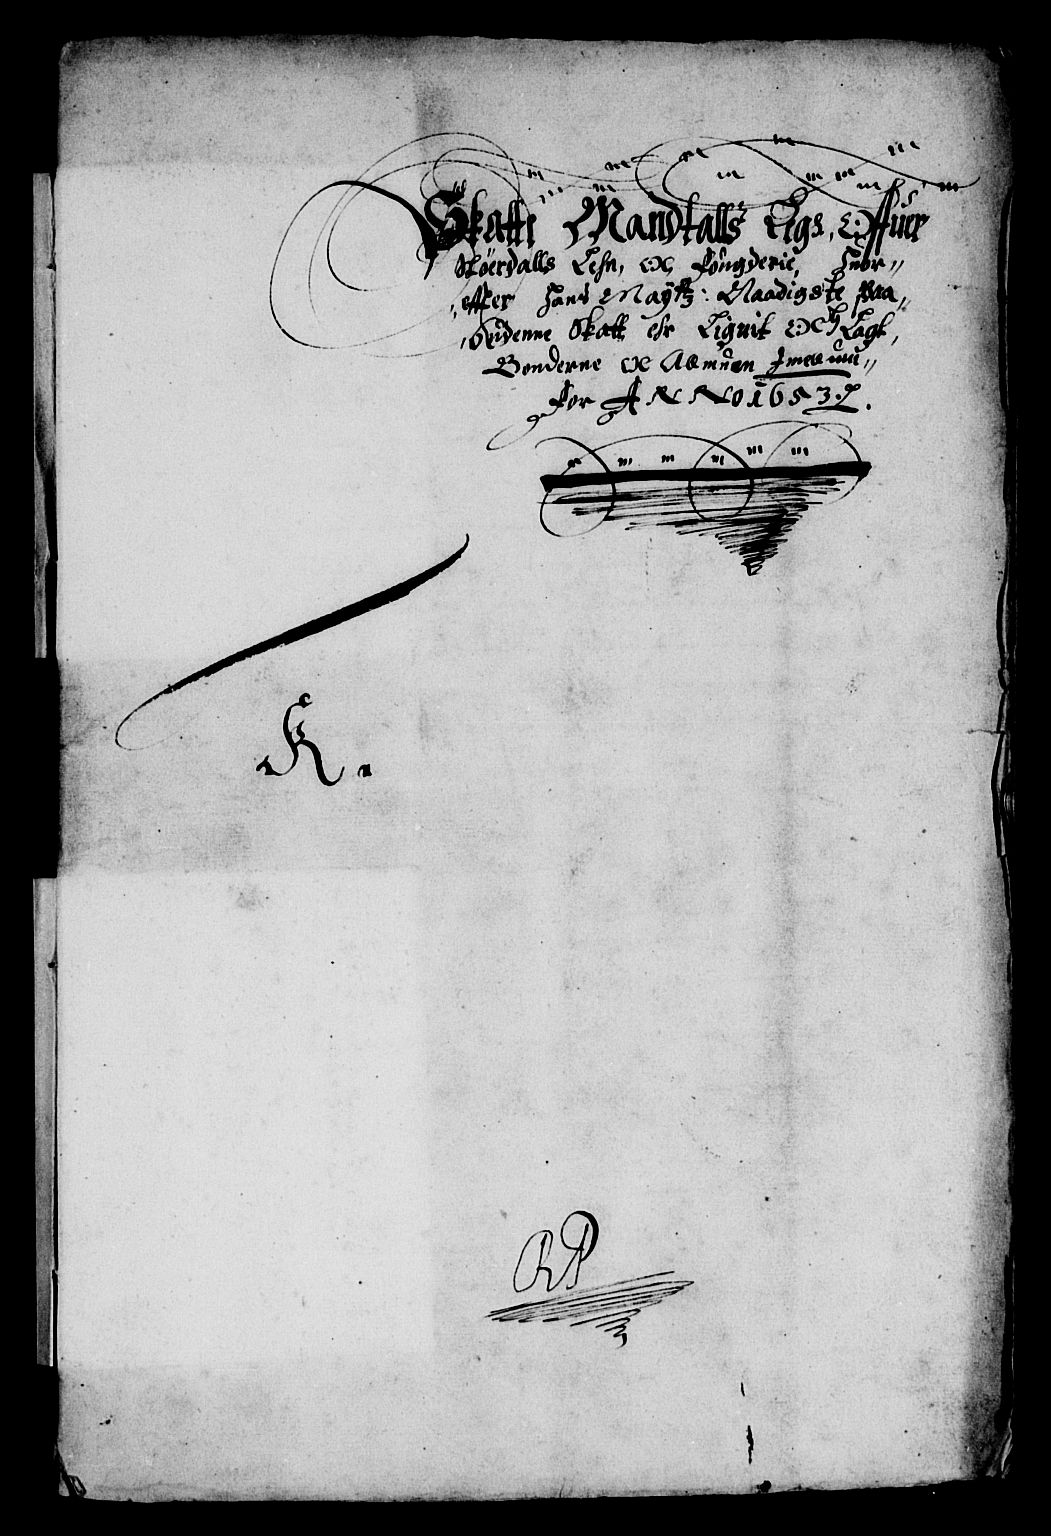 Skatte Mandtalls Ligr. Offuer
Støerdalls Lehn, och fougderie, huor"
effter Hans Mayttz: Naadigste paa"
budenne Skatt ehr Lignit och Lagt,
Bonderne och Almuen Imellum"
For ANNO 1653.
K.
RP